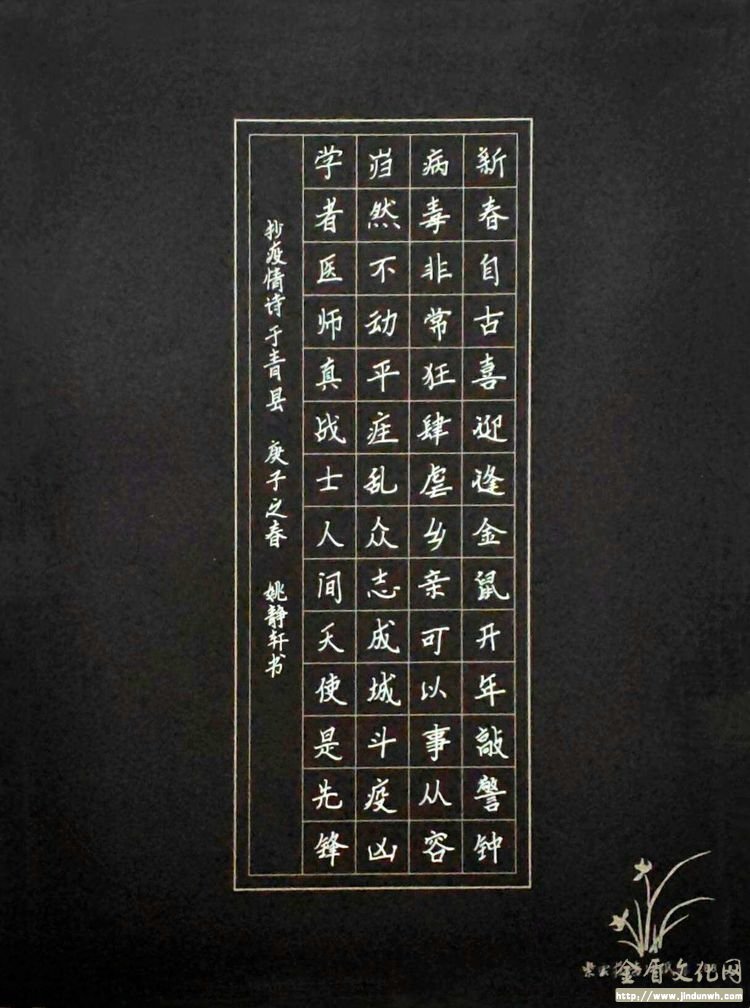 新春自古喜迎逢金鼠开年敲警钟
病毒非常狂肆虐乡亲可以事从容
岿然不动平疰乱众志成城斗疫凶
学者医师真战士人间天使是先锋
抄疫情诗于青县 庚子之春 姚静轩书
金盾文化网
http://www.jindunwh.com